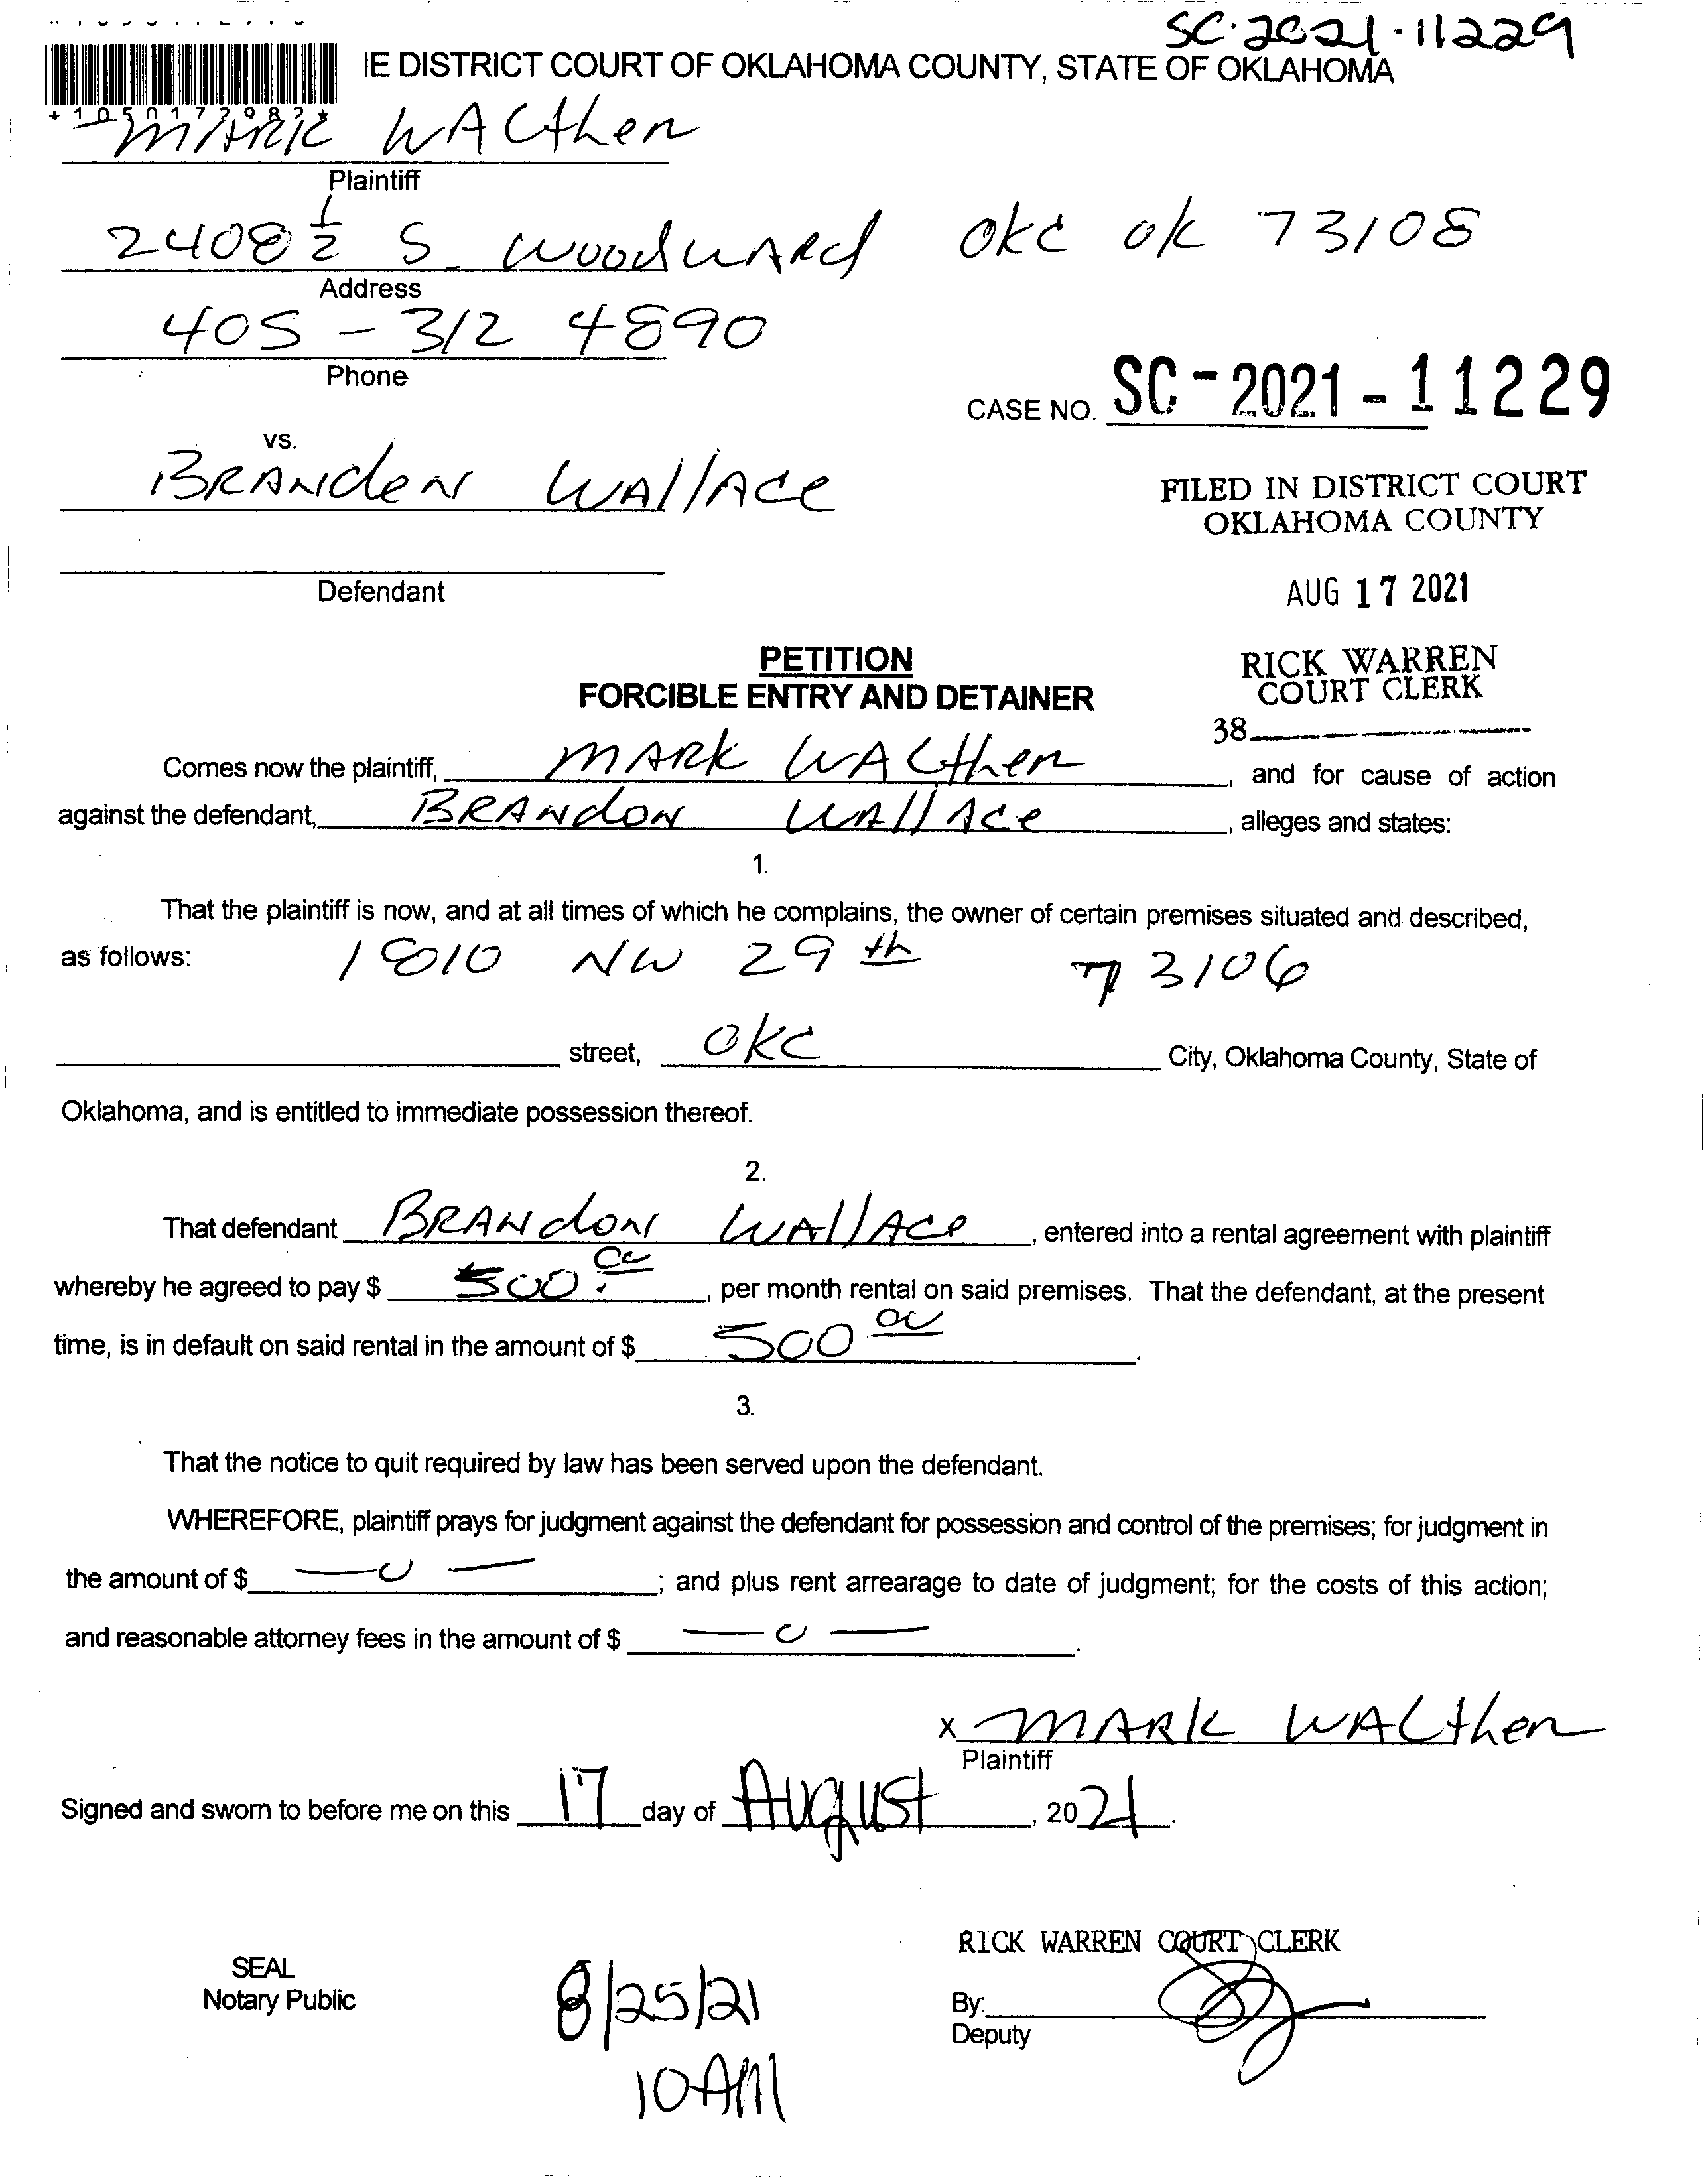 SC-2021-11229
IE DISTRICT COURT OF OKLAHOMA COUNTY, STATE OF OKLAHOMA
*1050172982*
MARK WALthen
Plaintiff
2408 1/2 S. WoodwARd OKC OK 73108
Address
405-312 4890
Phone
CASE NO. SC-2021-11229
vs.
BRANdeN WAllAce
FILED IN DISTRICT COURT
OKLAHOMA COUNTY
Defendant
AUG 17 2021
PETITION
FORCIBLE ENTRY AND DETAINER
RICK WARREN
COURT CLERK
38
Comes now the plaintiff, MARK WALthen, and for cause of action
against the defendant, BRANdoN WAllAce, alleges and states:
1.
That the plaintiff is now, and at all times of which he complains, the owner of certain premises situated and described,
as follows: 1810 NW 29th 73106
street, OKC City, Oklahoma County, State of
Oklahoma, and is entitled to immediate possession thereof.
2.
That defendant BRANdoN WAllAce, entered into a rental agreement with plaintiff
whereby he agreed to pay $ 500.00, per month rental on said premises. That the defendant, at the present
time, is in default on said rental in the amount of $ 500 00.
3.
That the notice to quit required by law has been served upon the defendant.
WHEREFORE, plaintiff prays for judgment against the defendant for possession and control of the premises; for judgment in
the amount of $ —0—; and plus rent arrearage to date of judgment; for the costs of this action;
and reasonable attorney fees in the amount of $ —0—.
X MARK WALthen
Plaintiff
Signed and sworn to before me on this 17 day of August, 2021.
RICK WARREN COURT CLERK
SEAL
Notary Public
8/25/21
By:
Deputy
10AM